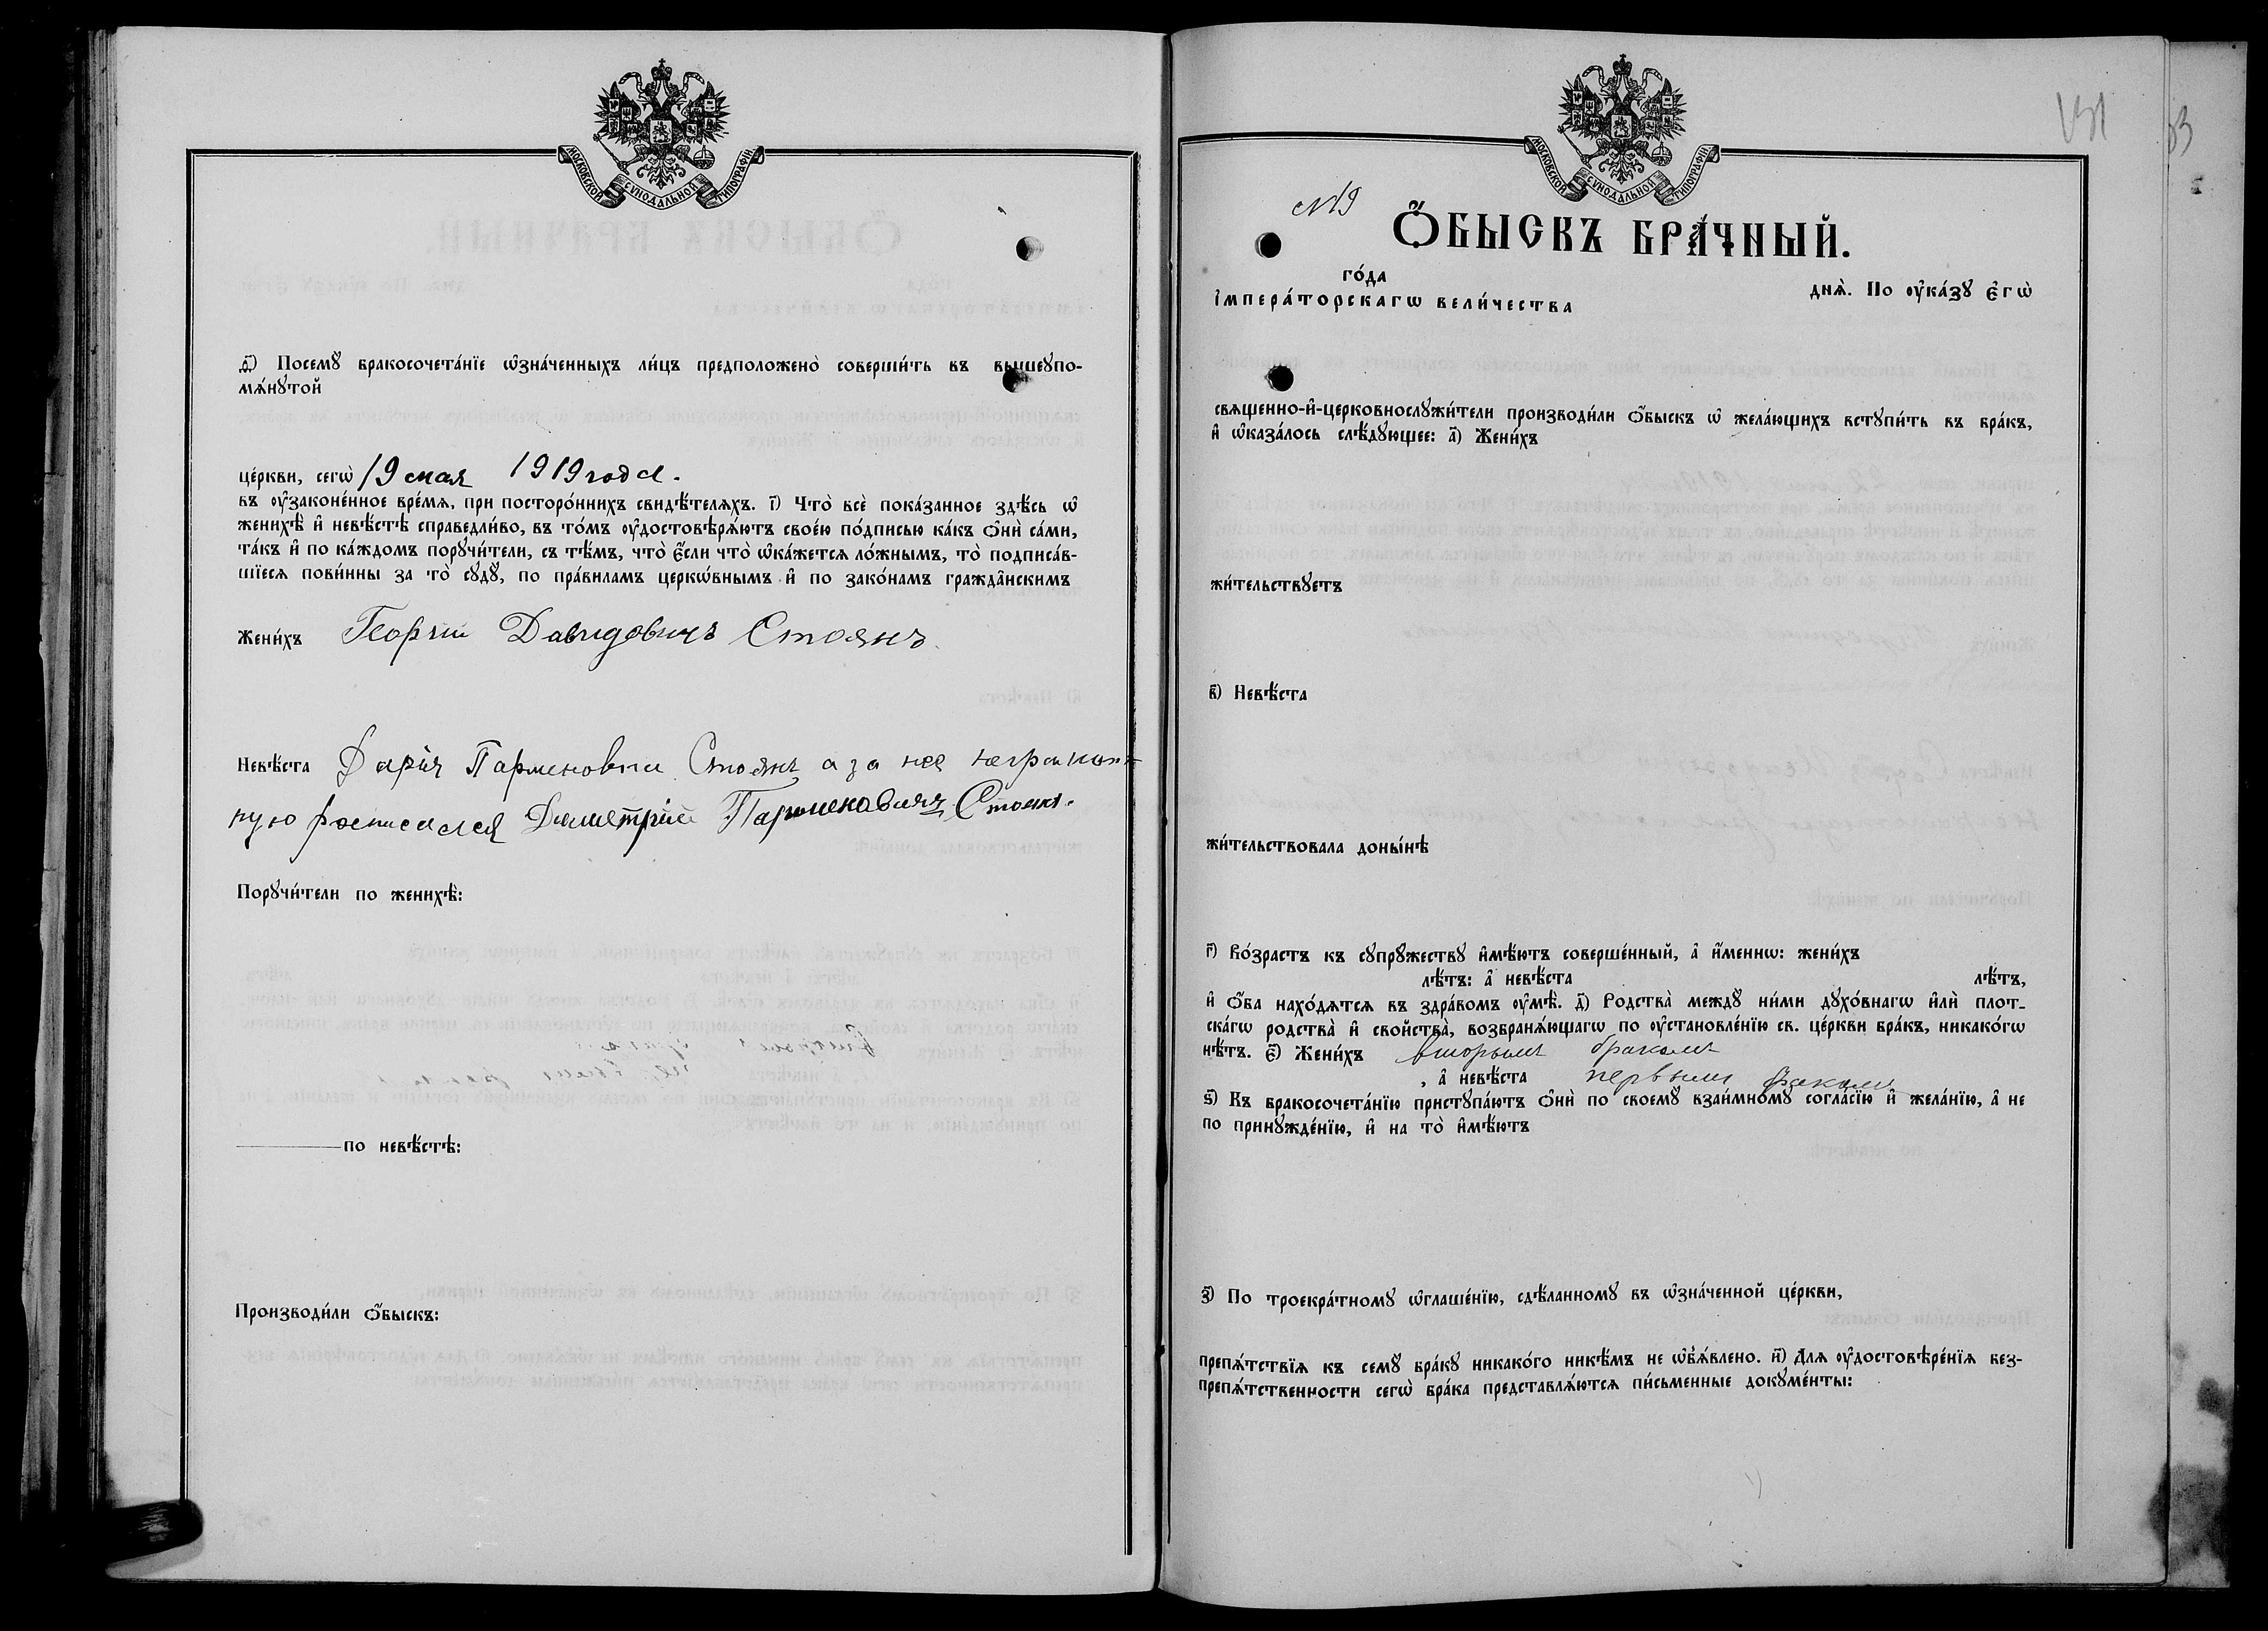 МОСКОВСКОЙ СѴНОДАЛЬНОЙ ТИПОГРАФІИ
д҃) Посемꙋ̀ бракосочета́нїе ѡ҆зна́ченныхъ ли́цъ предположено̀ соверши́ть въ вышеꙋпо-
мѧ́нꙋтой
це́ркви, сегѡ̀ 19 мая 1919 года.
въ ᲂу҆законе́нное вре́мѧ, при посторо́ннихъ свидѣ́телѧхъ. і҃) Что̀ всѐ пока́занное здѣ́сь ѡ҆
женихѣ̀ и҆ невѣ́стѣ справедли́во, въ то́мъ ᲂу҆достовѣрѧ́ютъ свое́ю по́дписью ка́къ ѻ҆нѝ са́ми,
та́къ и҆ по ка́ждомъ порꙋчи́тели, съ тѣ́мъ, что̀ є҆́сли что̀ ѡ҆ка́жетсѧ ло́жнымъ, то̀ подписа́в-
шїесѧ пови́нны за то̀ сꙋдꙋ̀, по пра́виламъ церкѡ́внымъ и҆ по зако́намъ гражда̑нскимъ
Жени́хъ Георгій Давидовичъ Стоянъ
Невѣ́ста Дарія Парменовна Стоянъ а за нее неграмот
ную росписался Димитрій Парменавичъ Стоянъ.
Порꙋчи́тели по женихѣ̀:
по невѣ́стѣ:
Производи́ли ѻ҆́быскъ:
131
33
МОСКОВСКОЙ СѴНОДАЛЬНОЙ ТИПОГРАФІИ
№19
Ѻ҆́БЫСКЪ БРА́ЧНЫЙ.
го́да днѧ̀. По ᲂу҆ка́зꙋ є҆гѡ̀
і҆мпера́торскагѡ вели́чества
свѧщенно-и҆-церковнослꙋжи́тели производи́ли ѻ҆́быскъ ѡ҆ жела́ющихъ встꙋпи́ть въ бра́къ,
и҆ ѡ҆каза́лось слѣ́дꙋющее: а҃) Жени́хъ
жи́тельствꙋетъ
в҃) Невѣ́ста
жи́тельствовала доны́нѣ
г҃) Во́зрастъ къ сꙋпрꙋ́жествꙋ и҆мѣ́ютъ соверше́нный, а҆ и҆́меннѡ: жени́хъ
лѣ́тъ: а҆ невѣ́ста лѣ́тъ,
и҆ ѻ҆́ба нахо́дѧтсѧ въ здра́вомъ ᲂу҆мѣ̀. д҃) Родства̀ междꙋ ни́ми дꙋхо́внагѡ и҆лѝ плот-
ска́гѡ родства̀ и҆ свойства̀, возбранѧ́ющагѡ по ᲂу҆становле́нїю св. це́ркви бра́къ, никако́гѡ
нѣ́тъ. є҃) Жени́хъ вторымъ бракомъ
, а҆ невѣ́ста первымъ бракомъ
ѕ҃) Къ бракосочета́нїю пристꙋпа́ютъ ѻ҆нѝ по своемꙋ̀ взаи́мномꙋ согла́сїю и҆ жела́нїю, а҆ не
по принꙋжде́нїю, и҆ на то̀ и҆мѣ́ютъ
з҃) По троекра́тномꙋ ѡ҆глаше́нїю, сдѣ́ланномꙋ въ ѡ҆зна́ченной це́ркви,
препѧ́тствїѧ къ семꙋ̀ бра́кꙋ никако́го никѣ́мъ не ѡ҆б̾ѧ́влено. и҃) Длѧ ᲂу҆достовѣре́нїѧ без-
препѧ́тственности сегѡ̀ бра́ка представлѧ́ютсѧ пи́сьменные докꙋме́нты: